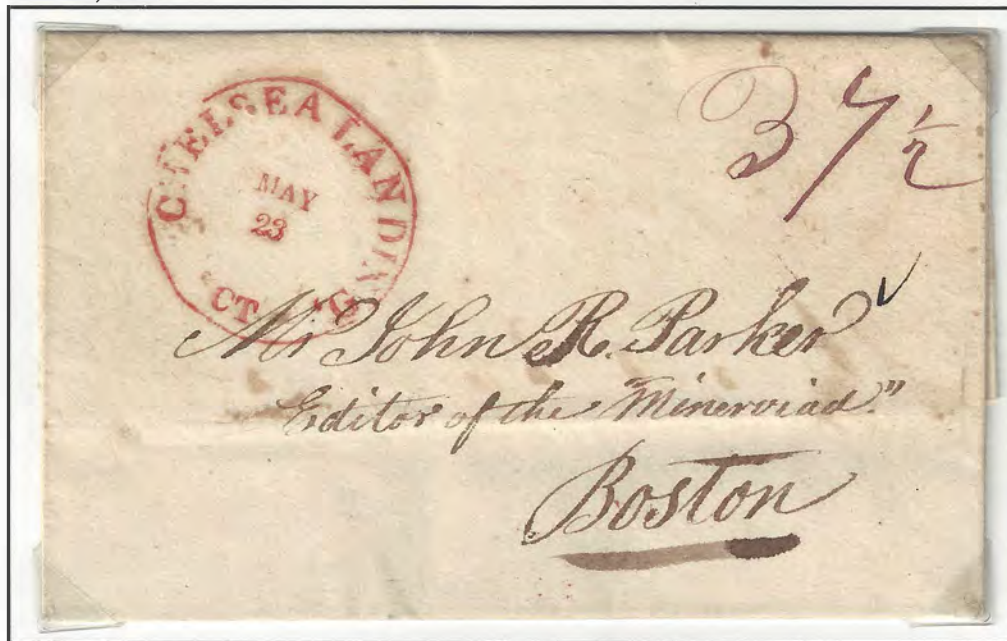 CHELSEA LANDING
MAY
23
CT
37½
Mr John R. Parker
Editor of the "Minerviad."
Boston